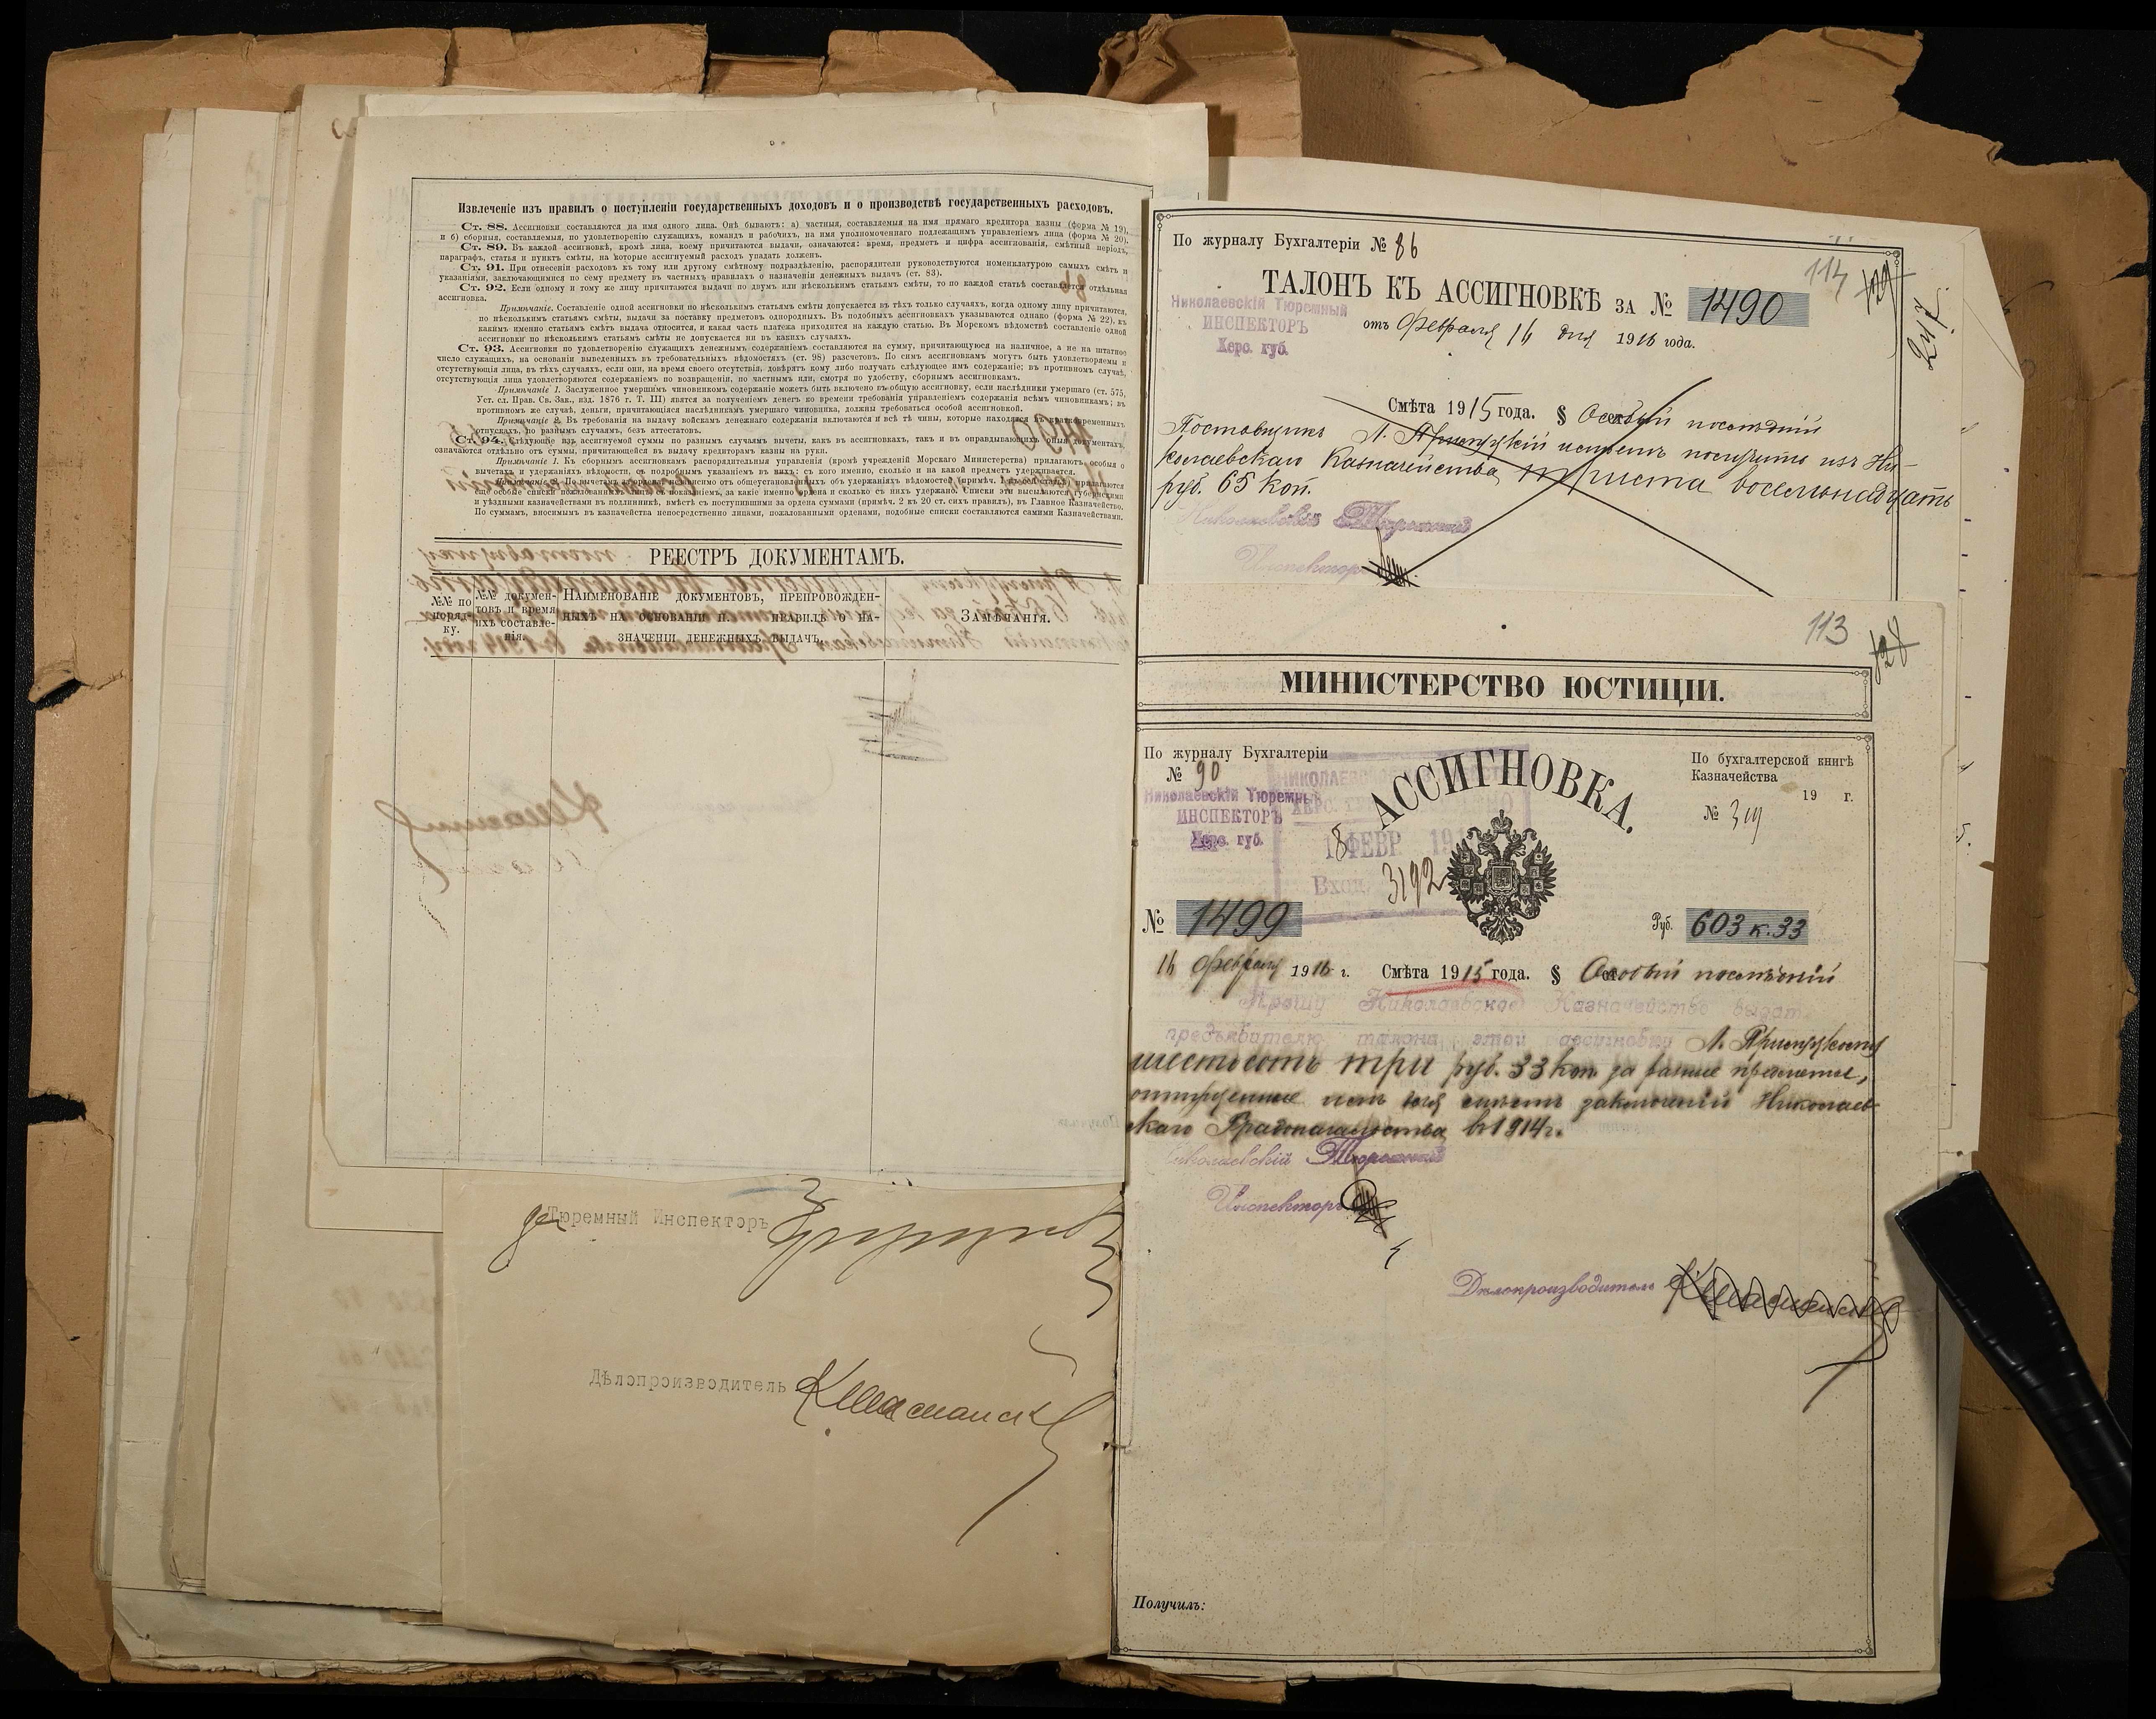 Извлеченіе изъ правилъ о поступленіи государственныхъ доходовъ и о производствѣ государственныхъ расходовъ.
Ст. 88. Ассигновки составляются на имя одного лица. Онѣ бываютъ: а) частныя, составляемыя на имя прямаго кредитора казны (форма № 19),
и б) сборныя, составляемыя, по удовлетворенію служащихъ, командъ и рабочихъ, на имя уполномоченнаго подлежащимъ управленіемъ лица (форма № 20).
Ст. 89. Въ каждой ассигновкѣ, кромѣ лица, коему причитаются выдачи, означаются: время, предметъ и цифра ассигнованія, смѣтный періодъ,
параграфъ, статья и пунктъ смѣты, на которые ассигнуемый расходъ упадать долженъ.
Ст. 91. При отнесеніи расходовъ къ тому или другому смѣтному подраздѣленію, распорядители руководствуются номенклатурою самыхъ смѣтъ и
указаніями, заключающимися по сему предмету въ частныхъ правилахъ о назначеніи денежныхъ выдачъ (ст. 83).
Ст. 92. Если одному и тому же лицу причитаются выдачи по двумъ или нѣсколькимъ статьямъ смѣты, то по каждой статьѣ составляется отдѣльная
ассигновка.
Примѣчаніе. Составленіе одной ассигновки по нѣсколькимъ статьямъ смѣты допускается въ тѣхъ только случаяхъ, когда одному лицу причитаются,
по нѣсколькимъ статьямъ смѣты, выдачи за поставку предметовъ однородныхъ. Въ подобныхъ ассигновкахъ указываются однако (форма № 22), къ
какимъ именно статьямъ смѣтъ выдача относится, и какая часть платежа приходится на каждую статью. Въ Морскомъ вѣдомствѣ составленіе одной
ассигновки по нѣсколькимъ статьямъ смѣты не допускается ни въ какихъ случаяхъ.
Ст. 93. Ассигновки по удовлетворенію служащихъ денежнымъ содержаніемъ составляются на сумму, причитающуюся на наличное, а не на штатное
число служащихъ, на основаніи выведенныхъ въ требовательныхъ вѣдомостяхъ (ст. 98) разсчетовъ. По симъ ассигновкамъ могутъ быть удовлетворяемы и
отсутствующія лица, въ тѣхъ случаяхъ, если они, на время своего отсутствія, довѣрятъ кому либо получать слѣдующее имъ содержаніе; въ противномъ случаѣ,
отсутствующія лица удовлетворяются содержаніемъ по возвращеніи, по частнымъ или, смотря по удобству, сборнымъ ассигновкамъ.
Примѣчаніе 1. Заслуженное умершимъ чиновникомъ содержаніе можетъ быть включено въ общую ассигновку, если наслѣдники умершаго (ст. 575,
Уст. сл. Прав. Св. Зак., изд. 1876 г. Т. III) явятся за полученіемъ денегъ ко времени требованія управленіемъ содержанія всѣмъ чиновникамъ; въ
противномъ же случаѣ, деньги, причитающіяся наслѣдникамъ умершаго чиновника, должны требоваться особой ассигновкой.
Примѣчаніе 2. Въ требованія на выдачу войскамъ денежнаго содержанія включаются и всѣ тѣ чины, которые находятся въ кратковременныхъ
отпускахъ, по разнымъ случаямъ, безъ аттестатовъ.
Ст. 94. Слѣдующіе изъ ассигнуемой суммы по разнымъ случаямъ вычеты, какъ въ ассигновкахъ, такъ и въ оправдывающихъ оныя документахъ,
означаются отдѣльно отъ суммы, причитающейся въ выдачу кредиторамъ казны на руки.
Примѣчаніе 1. Къ сборнымъ ассигновкамъ распорядительныя управленія (кромѣ учрежденій Морскаго Министерства) прилагаютъ особыя о
вычетахъ и удержаніяхъ вѣдомости, съ подробнымъ указаніемъ въ нихъ: съ кого именно, сколько и на какой предметъ удерживается.
и уѣздными казначействами въ подлинникѣ, вмѣстѣ съ поступившими за ордена суммами (примѣч. 2 къ 20 ст. сихъ правилъ), въ Главное Казначейство.
По суммамъ, вносимымъ въ казначейства непосредственно лицами, пожалованными орденами, подобные списки составляются самими Казначействами.
РЕЕСТРЪ ДОКУМЕНТАМЪ.
№№ по порядку.
№№ документовъ и время ихъ составленія.
Наименованіе документовъ, препровожденныхъ на основаніи п. правилъ о назначеніи денежныхъ выдачъ.
Замѣчанія.
Тюремный Инспекторъ
Дѣлопроизводитель
По журналу Бухгалтеріи № 86
114
ТАЛОНЪ КЪ АССИГНОВКѢ за № 1490
Николаевскій Тюремный
ИНСПЕКТОРЪ
Херс. губ.
отъ Февраля 16 дня 1916 года.
Смѣта 1915 года. § Особый послѣдній
Поставщикъ Л.
Казначейства триста восемьнадцать
руб. 65 коп.
Николаевскій Тюремный
Инспекторъ
113
128
МИНИСТЕРСТВО ЮСТИЦІИ.
По журналу Бухгалтеріи
№ 90
Николаевскій Тюремный
ИНСПЕКТОРЪ
Херс. губ.
АССИГНОВКА.
По бухгалтерской книгѣ
Казначейства
19 г.
№ 319
ФЕВР
Вход. 3192
№ 1499
Руб. 603 к. 33
16 Февраля 1916 г. Смѣта 1915 года. § Особый послѣдній
Прошу Николаевское Казначейство выдать
предъявителю талона этой ассигновки Л.
шестьсотъ три руб. 33 коп. за разные предметы,
отпущенные заключеній Николаев-
скаго Градоначальства въ 1914 г.
Николаевскій Тюремный
Инспекторъ
Дѣлопроизводитель
Получилъ: